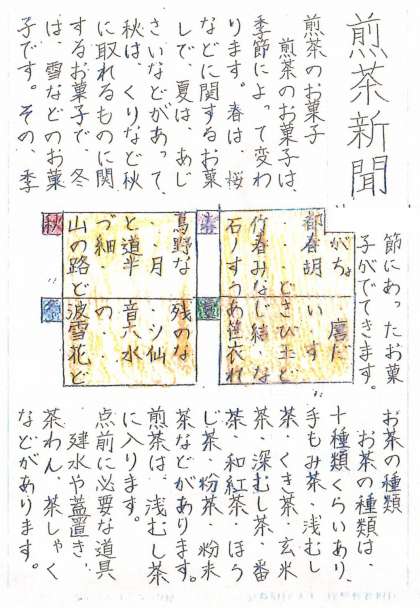 煎茶新聞
煎茶のお菓子
煎茶のお菓子は、
季節によって変わ
ります。春は、桜
などに関するお菓
しで、夏は、あじ
さいなどがあって、
秋はくりなど秋
に取れるものに関
するお菓子で、冬
は、雪などのお菓
子です。その、季
節にあったお菓
子がでてきます。
春
都春胡
竹春みなし結・な
石ノすうあ笹衣れ
秋
蔦野な
と道半
山の路ど
冬
残のな
波雪花ど
お茶の種類
お茶の種類は、
十種類くらいあり、
手もみ茶・浅むし
茶・くき茶・玄米
茶・深むし茶・番
茶・和紅茶・ほう
じ茶・粉茶・粉末
茶などがあります。
煎茶は、浅むし茶
に入ります。
点前に必要な道具
建水や蓋置き、
茶わん、茶しゃく
などがあります。